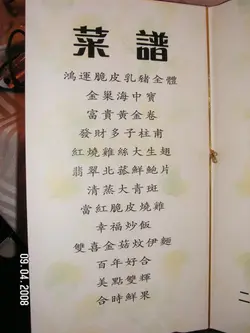 菜譜
鴻運脆皮乳豬全體
金巢海中寶
富貴黃金卷
發財多子柱甫
紅燒雞絲大生翅
翡翠北菇鮮鮑片
清蒸大青斑
當紅脆皮燒雞
幸福炒飯
雙喜金菇炆伊麵
百年好合
美點雙輝
合時鮮果
二
09.04.2008